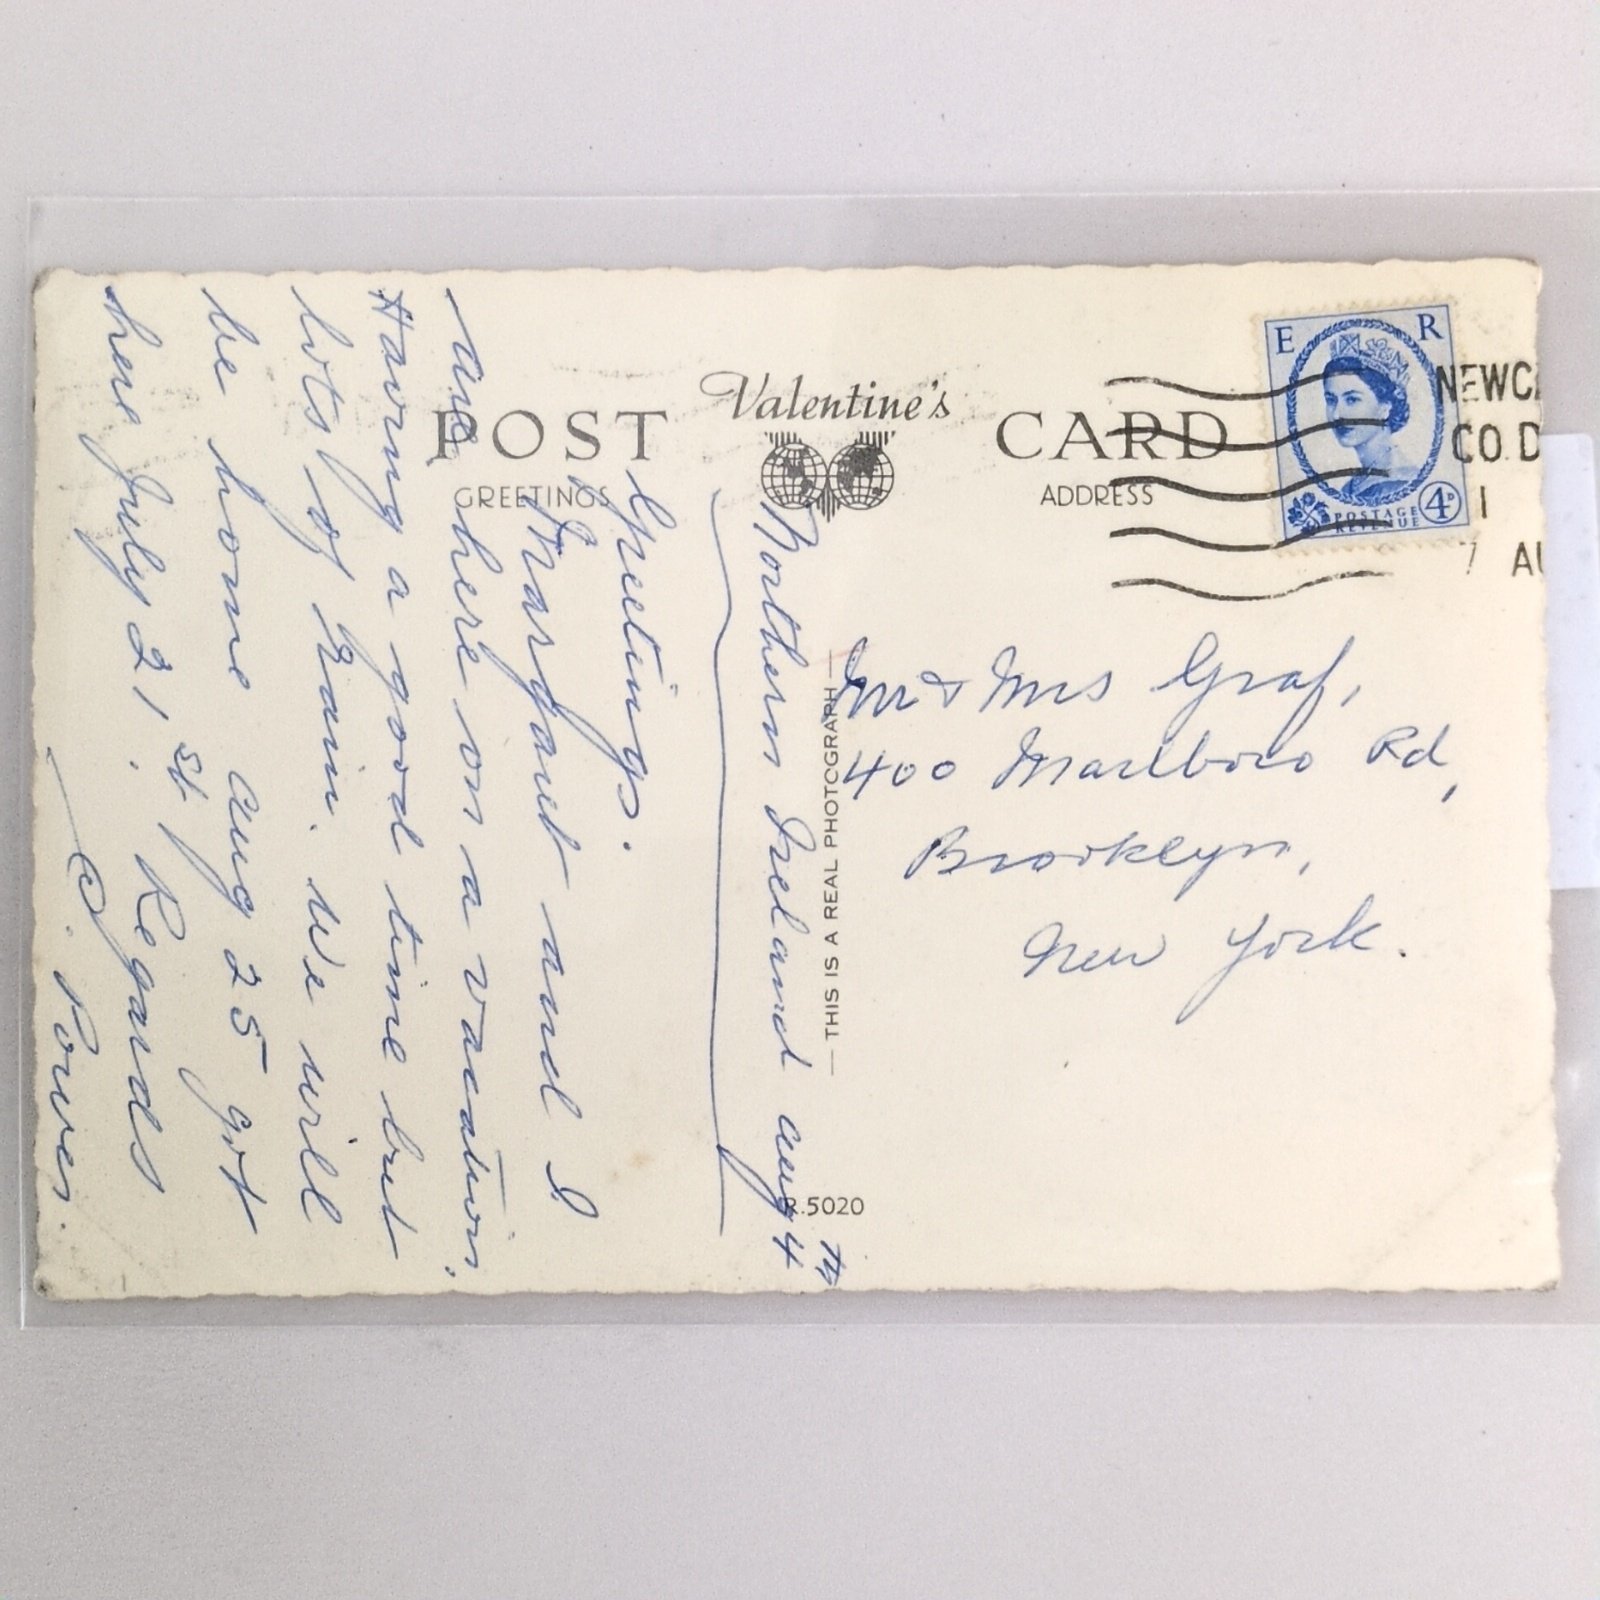 POST Valentine's CARD
GREETINGS
ADDRESS
E R
POSTAGE
REVENUE
4D
NEWC
CO. D
1
7 AU
Northern Ireland Aug 4th
Greetings.
Margaret and I
are here on a vacation.
Having a good time but
lots of rain. We will
be home Aug 25 got
here July 21st. Regards
C. Power.
THIS IS A REAL PHOTOGRAPH
R.5020
Mr & Mrs Graf,
400 Marlboro Rd,
Brooklyn,
New York.